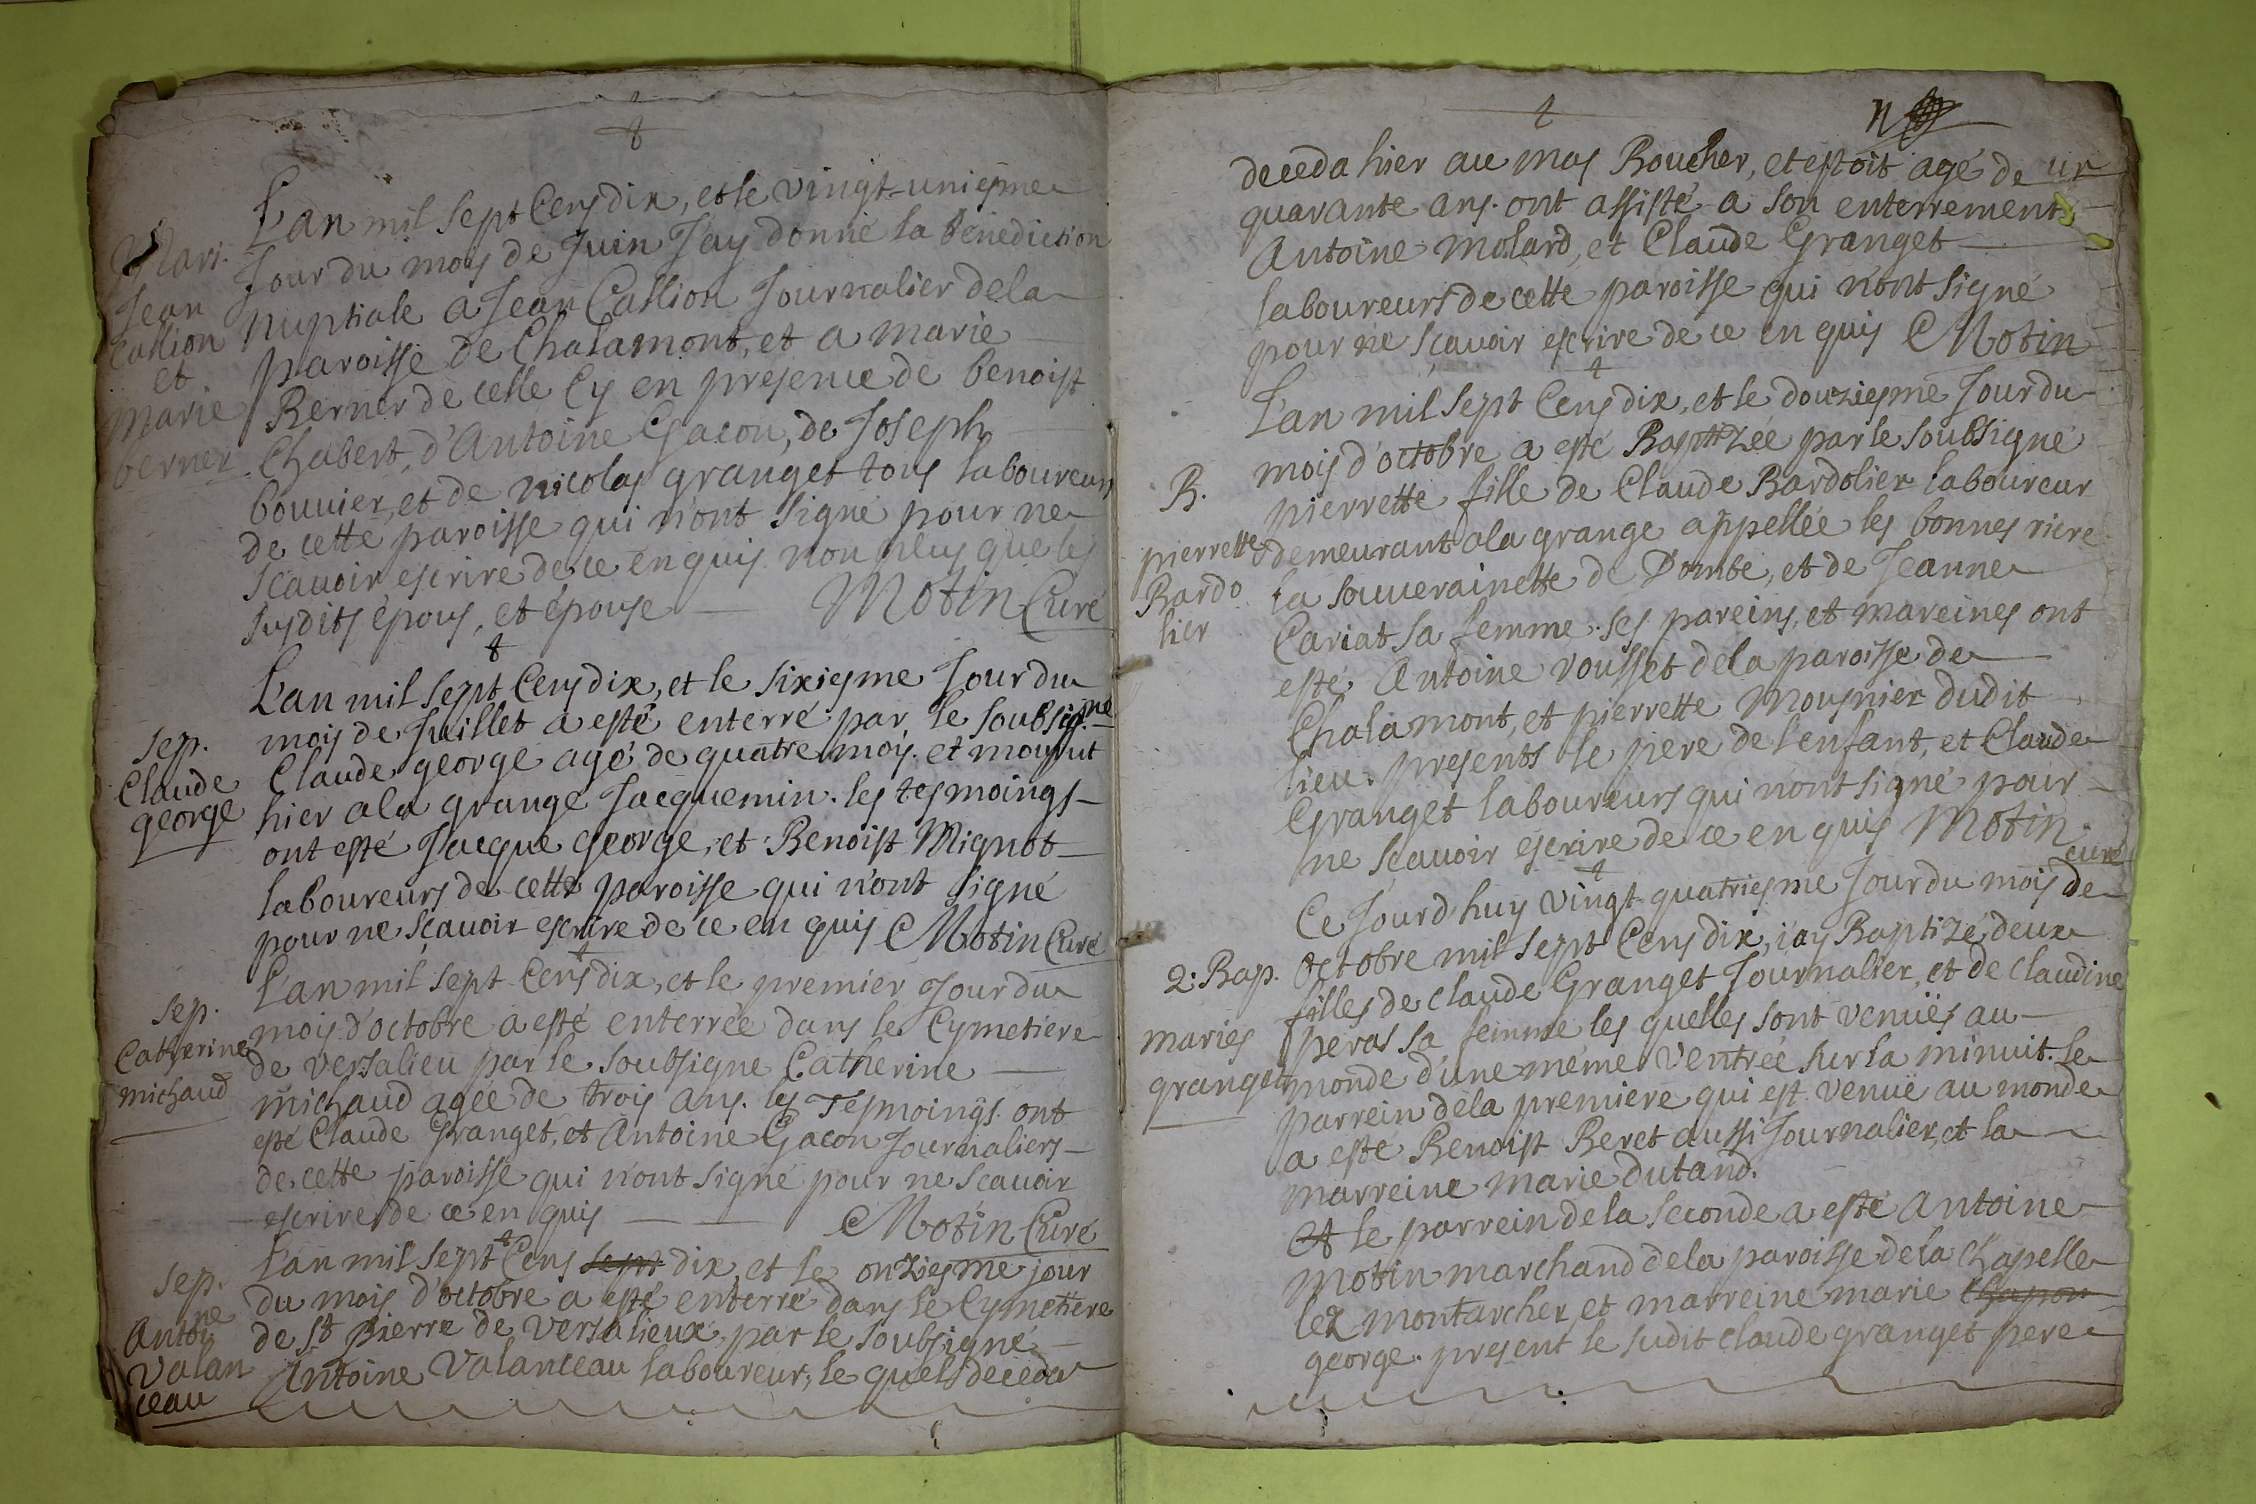 L'an mil sept Cens dix, et le vingt-uniesme
Jour du mois de Juin J'ay donné la Benediction
nuptiale a Jean Callion Journalier dela
paroisse de Chalamont, et a marie
Berner de celle Cy en presence de benoist
Chabert, d'Antoine Gacon, de Joseph
bouvier, et de nicolas granget tous laboureurs
de cette paroisse qui n'ont signé pour ne
scavoir escrire de ce enquis non plus que les
susdits épous, et épouse Motin Curé
Mari.
Jean
Callion
et
marie
berner
L'an mil sept Cens dix, et le sixiesme Jour du
mois de Juillet a esté enterré par le soubsigné
Claude george agé de quatre mois. et mourut
hier ala grange Jacquemin. les tesmoings
ont esté Jacque george, et Benoist Mignot
laboureurs de cette paroisse qui n'ont signé
pour ne sçavoir escrire de ce en quis Motin Curé
sep.
Claude
george
L'an mil sept Cens dix, et le premier Jour du
mois d'octobre a esté enterrée dans le Cymetiere
de versalieu par le soubsigne Catherine
michaud agée de trois ans. les Tesmoings ont
esté Claude Granget, et Antoine Gacon Journaliers
de cette paroisse qui n'ont signé pour ne scavoir
escrire de ce en quis Motin Curé
sep.
Catherine
michaud
L'an mil sept Cens sept dix, et le onziesme jour
du mois d'octobre a esté enterré dans le Cymetiere
de St Pierre de versalieux par le soubsigné
Antoine Valanceau laboureur, le quel deceda
sep.
Antoi
ne
Valan
ceau
deceda hier au mas Boucher, et estoit agé de
quarante ans. ont assisté a son enterrement
Antoine molard, et Claude Granget
laboureurs de cette paroisse qui n'ont signé
pour ne sçavoir escrire de ce en quis Motin
L'an mil sept Cens dix, et le douziesme Jour du
mois d'octobre a esté Baptizée par le soubsigné
pierrette fille de Claude Bardolier laboureur
demeurant ala grange appellée les bonnes riere
la souverainette de Dombe, et de Jeanne
Cariat sa femme. ses pareins, et mareines ont
esté Antoine vousset dela paroisse de
Chalamont, et pierrette Mousnier dudit
lieu. presents le piere de l'enfant, et Claude
Granget laboureurs qui n'ont signé pour
ne scavoir escrire de ce en quis Motin
curé
B.
pierrette
Bardo
lier
Ce Jourd'huy vingt-quatriesme Jour du mois de
octobre mil sept Cens dix, i'ay Baptizé deux
filles de claude Granget Journalier, et de claudine
peras sa femme les quelles sont venuës au
monde d'une méme ventrée sur la minuit. le
parrein dela premiere qui est venuë au monde
a esté Benoist Beret aussi Journalier, et la
marreine marie dutand.
Et le parrein dela seconde a esté Antoine
Motin marchand dela paroisse dela Chapelle
lez montarcher, et marreine marie Chapon
george. present le sudit claude granget pere
2. Bap.
maries
granget